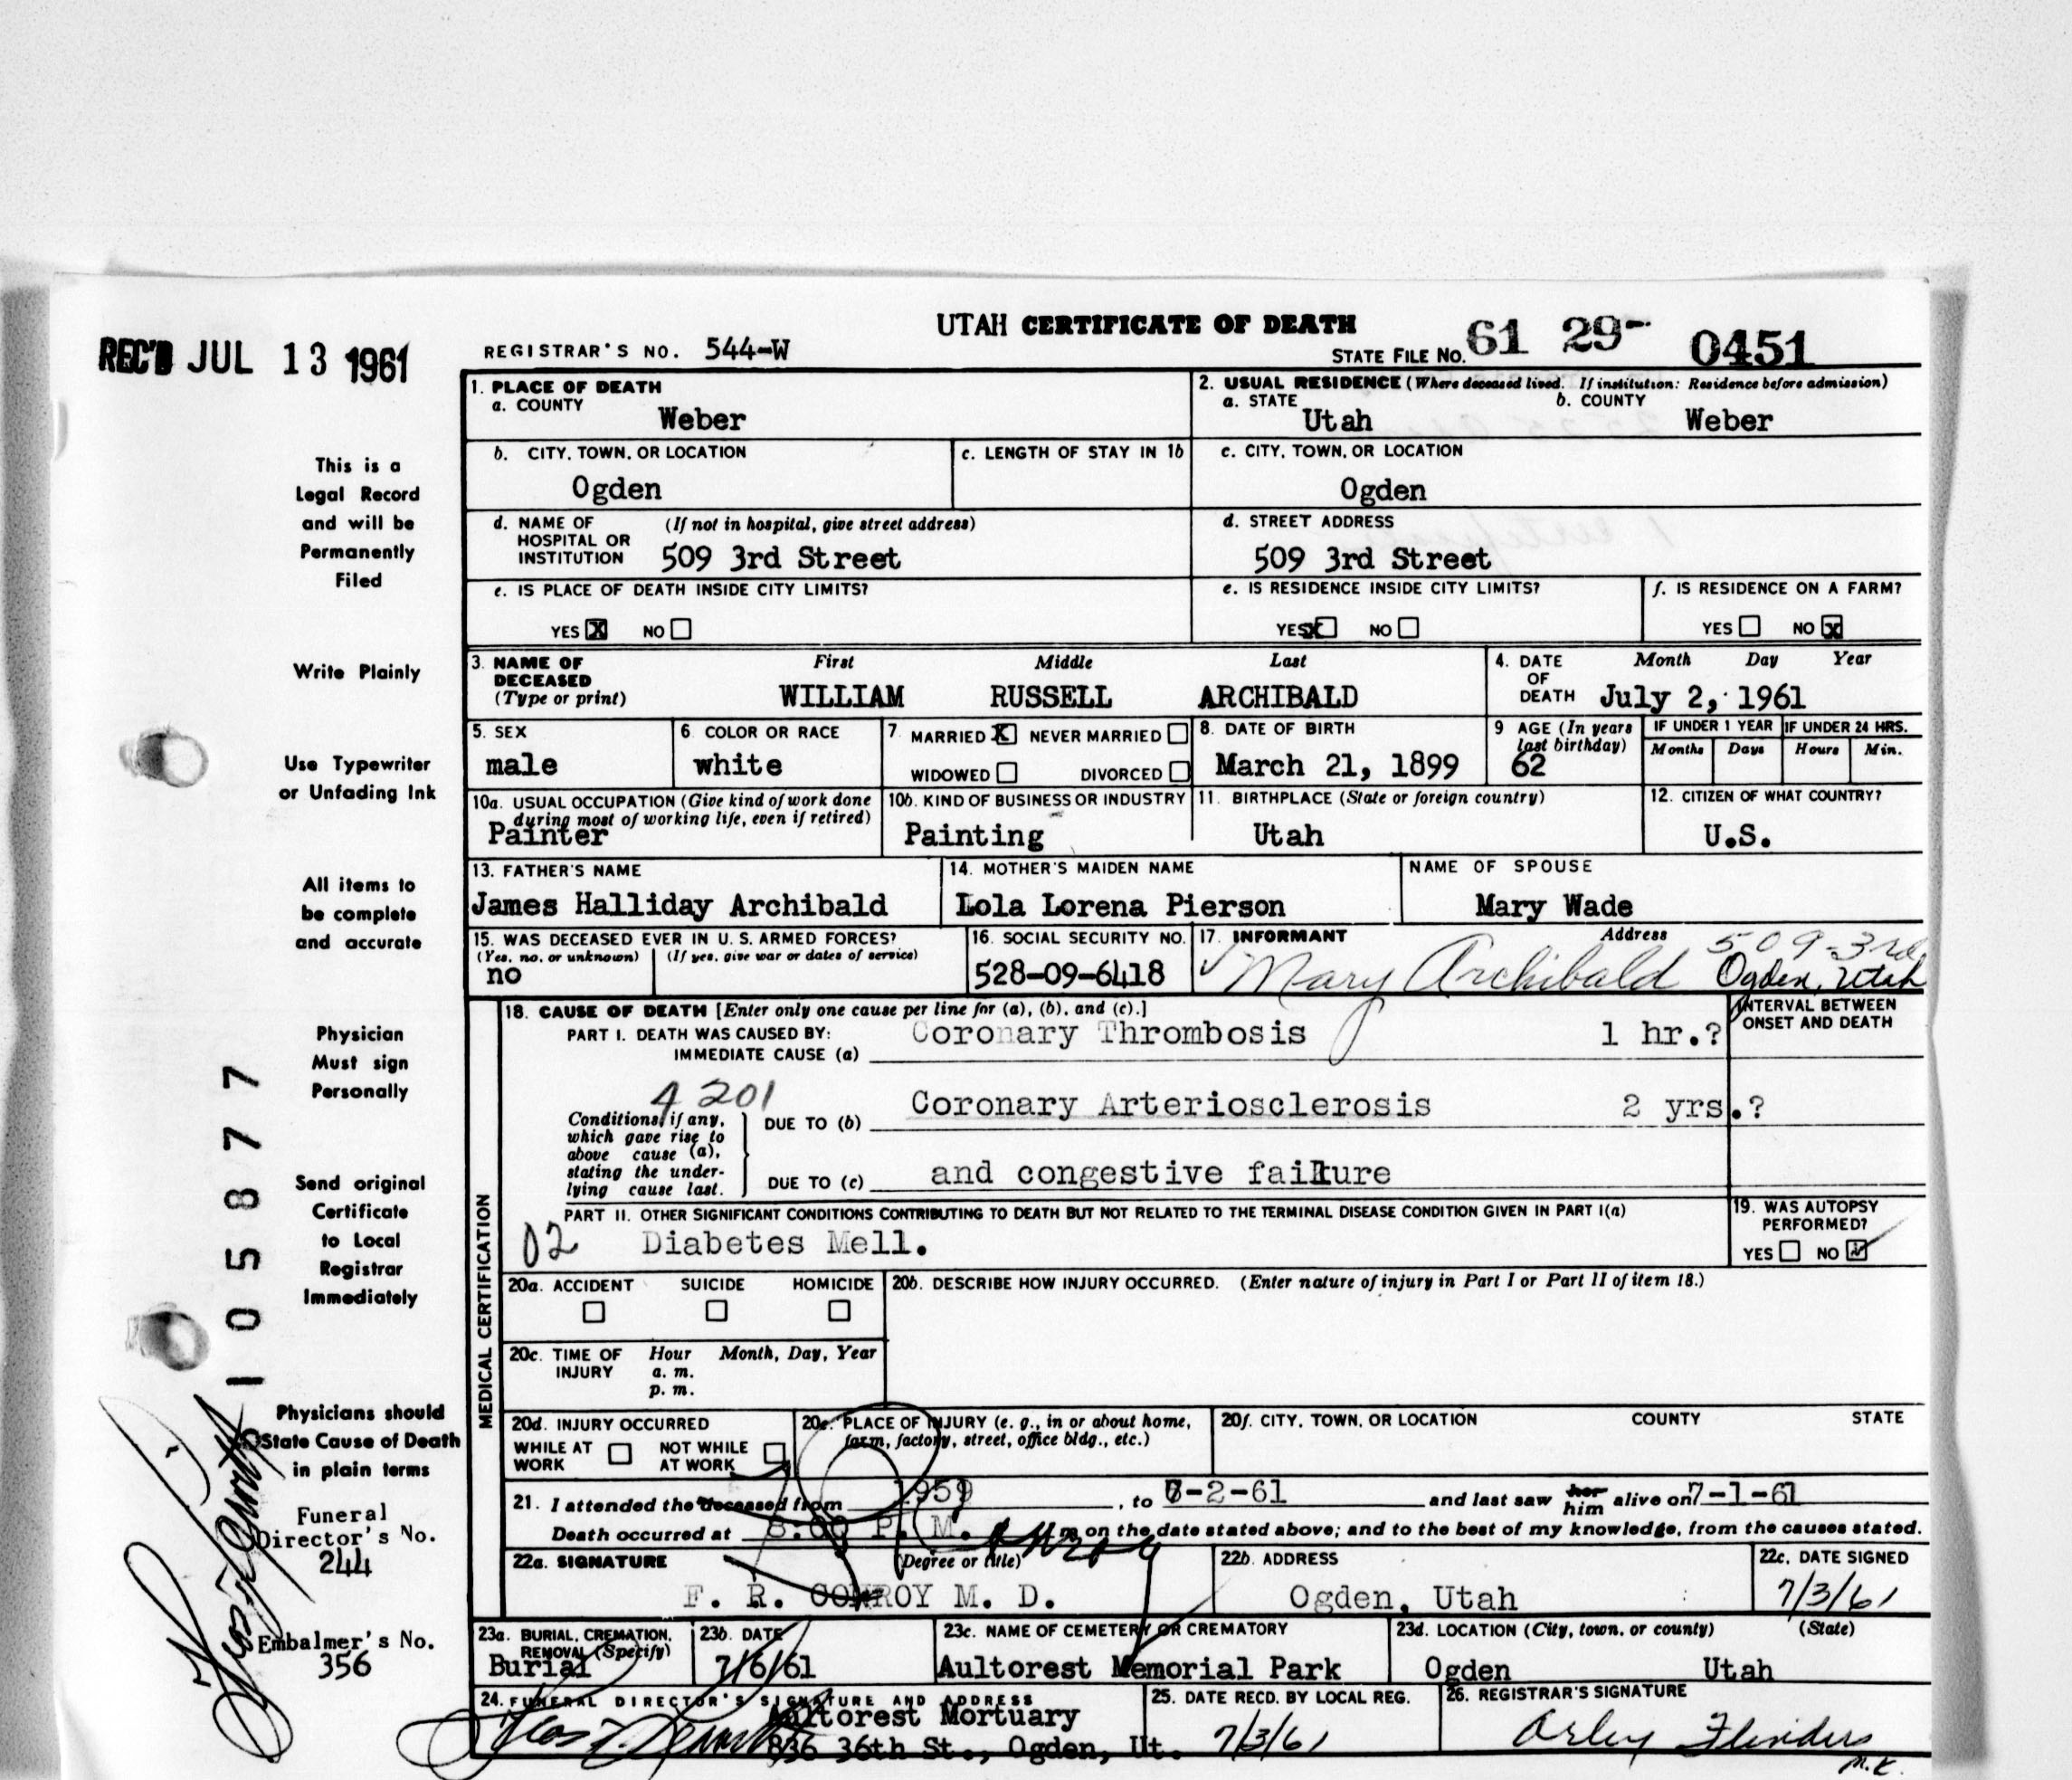 UTAH CERTIFICATE OF DEATH
REC'D JUL 13 1961
REGISTRAR'S NO. 544-W
STATE FILE No. 61 29- 0451
This is a
Legal Record
and will be
Permanently
Filed
Write Plainly
Use Typewriter
or Unfading Ink
All items to
be complete
and accurate
Physician
Must sign
Personally
Send original
Certificate
to Local
Registrar
Immediately
Physicians should
State Cause of Death
in plain terms
Funeral
Director's No.
244
Embalmer's No.
356
105877
1. PLACE OF DEATH
a. COUNTY
Weber
2. USUAL RESIDENCE (Where deceased lived. If institution: Residence before admission)
a. STATE b. COUNTY
Utah Weber
b. CITY, TOWN, OR LOCATION
Ogden
c. LENGTH OF STAY IN 1b
c. CITY, TOWN, OR LOCATION
Ogden
d. NAME OF (If not in hospital, give street address)
HOSPITAL OR
INSTITUTION 509 3rd Street
d. STREET ADDRESS
509 3rd Street
e. IS PLACE OF DEATH INSIDE CITY LIMITS?
YES X NO
e. IS RESIDENCE INSIDE CITY LIMITS?
YES X NO
f. IS RESIDENCE ON A FARM?
YES NO X
3. NAME OF First Middle Last
DECEASED
(Type or print) WILLIAM RUSSELL ARCHIBALD
4. DATE Month Day Year
OF
DEATH July 2, 1961
5. SEX
male
6. COLOR OR RACE
white
7. MARRIED X NEVER MARRIED
WIDOWED DIVORCED
8. DATE OF BIRTH
March 21, 1899
9 AGE (In years
last birthday)
62
IF UNDER 1 YEAR IF UNDER 24 HRS.
Months Days Hours Min.
10a. USUAL OCCUPATION (Give kind of work done
during most of working life, even if retired)
Painter
10b. KIND OF BUSINESS OR INDUSTRY
Painting
11. BIRTHPLACE (State or foreign country)
Utah
12. CITIZEN OF WHAT COUNTRY?
U.S.
13. FATHER'S NAME
James Halliday Archibald
14. MOTHER'S MAIDEN NAME
Lola Lorena Pierson
NAME OF SPOUSE
Mary Wade
15. WAS DECEASED EVER IN U. S. ARMED FORCES?
(Yes, no, or unknown) (If yes, give war or dates of service)
no
16. SOCIAL SECURITY NO.
528-09-6418
17. INFORMANT Address
Mary Archibald 509-3rd
Ogden, Utah
MEDICAL CERTIFICATION
18. CAUSE OF DEATH [Enter only one cause per line for (a), (b), and (c).]
INTERVAL BETWEEN
ONSET AND DEATH
PART I. DEATH WAS CAUSED BY:
IMMEDIATE CAUSE (a) Coronary Thrombosis 1 hr.?
4201
Conditions, if any,
which gave rise to
above cause (a),
stating the under-
lying cause last.
DUE TO (b) Coronary Arteriosclerosis 2 yrs.?
DUE TO (c) and congestive failure
PART II. OTHER SIGNIFICANT CONDITIONS CONTRIBUTING TO DEATH BUT NOT RELATED TO THE TERMINAL DISEASE CONDITION GIVEN IN PART I(a)
02 Diabetes Mell.
19. WAS AUTOPSY
PERFORMED?
YES NO
20a. ACCIDENT SUICIDE HOMICIDE
20b. DESCRIBE HOW INJURY OCCURRED. (Enter nature of injury in Part I or Part II of item 18.)
20c. TIME OF Hour Month, Day, Year
INJURY a. m.
p. m.
20d. INJURY OCCURRED
WHILE AT NOT WHILE
WORK AT WORK
20e. PLACE OF INJURY (e. g., in or about home,
farm, factory, street, office bldg., etc.)
20f. CITY, TOWN, OR LOCATION COUNTY STATE
21. I attended the deceased from 1959, to 7-2-61 and last saw her him alive on 7-1-61
Death occurred at 8:00 P. M. m on the date stated above; and to the best of my knowledge, from the causes stated.
22a. SIGNATURE (Degree or title)
F. R. CONROY M. D.
22b. ADDRESS
Ogden, Utah
22c. DATE SIGNED
7/3/61
23a. BURIAL, CREMATION,
REMOVAL (Specify)
Burial
23b. DATE
7/6/61
23c. NAME OF CEMETERY OR CREMATORY
Aultorest Memorial Park
23d. LOCATION (City, town, or county) (State)
Ogden Utah
24. FUNERAL DIRECTOR'S SIGNATURE AND ADDRESS
Aultorest Mortuary
836 36th St., Ogden, Ut.
25. DATE RECD. BY LOCAL REG.
7/3/61
26. REGISTRAR'S SIGNATURE
Orley Flinders